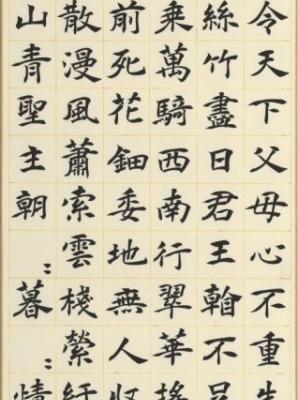 令天下父母心不重生
絲竹盡日君王看不足
乘萬騎西南行翠華搖
前死花鈿委地無人收
散漫風蕭索雲棧縈紆
山青聖主朝〻暮〻情